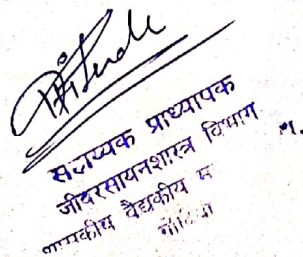 सहाय्यक प्राध्यापक
जीवरसायनशास्त्र विभाग
शासकीय वैद्यकीय म
गोंदिया